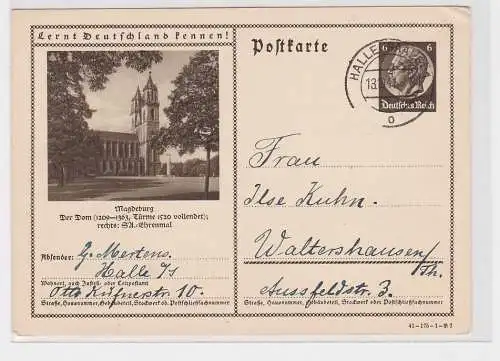 Lernt Deutschland kennen!
Postkarte
HALLE
13.
o
6 6
Deutsches Reich
Magdeburg
Der Dom (1209–1363, Türme 1520 vollendet);
rechts: SA.-Ehrenmal
Absender: G. Mertens.
Halle a/S
Wohnort, auch Zustell- oder Leitpostamt
Otto Küfnerstr. 10.
Straße, Hausnummer, Gebäudeteil, Stockwerk od. Postschließfachnummer
Frau
Ilse Kuhn.
Waltershausen/
Th.
Aussfeldstr. 3.
Straße, Hausnummer, Gebäudeteil, Stockwerk oder Postschließfachnummer
41-175-1-B2